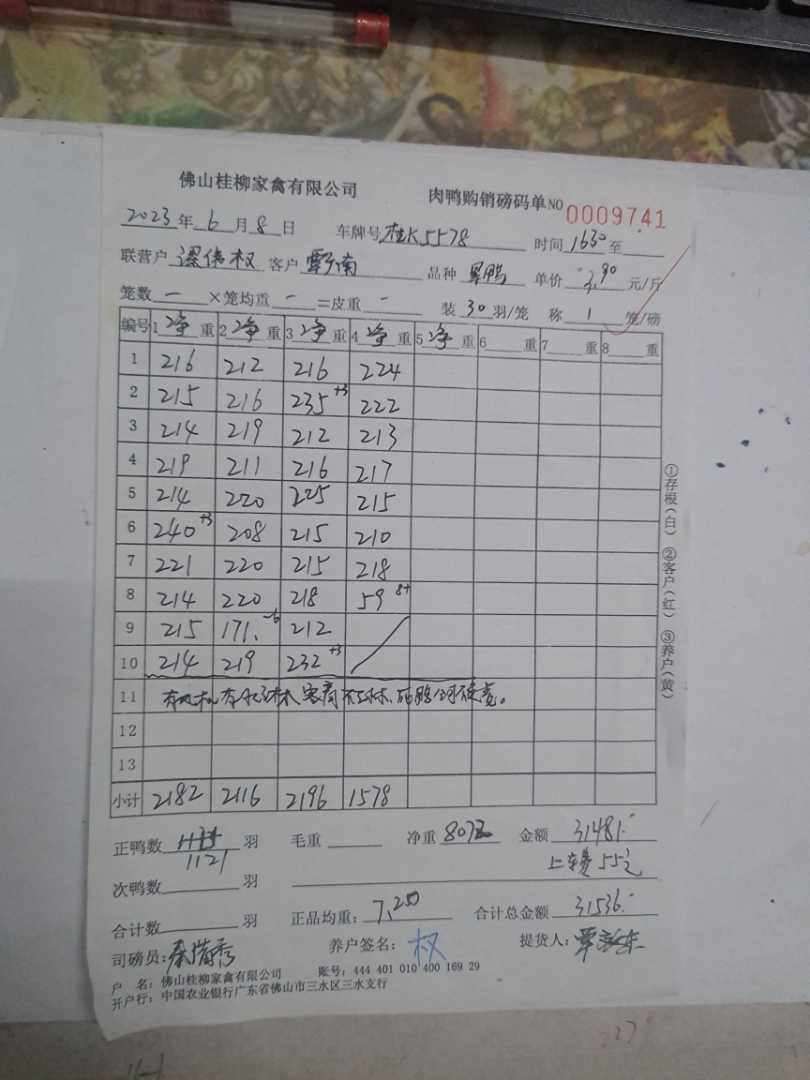 佛山桂柳家禽有限公司 肉鸭购销磅码单 NO 0009741
2023年6月8日 车牌号 桂K5578 时间 1630 至
联营户 梁伟权 客户 覃南 品种 单价 3.90 元/斤
笼数 一 ×笼均重 - =皮重 - 装 30 羽/笼 称 1 笼/磅
编号 1 净 重 2 净 重 3 净 重 4 净 重 5 净 重 6 重 7 重 8 重
1 216 212 216 224
2 215 216 235 +3 222
3 214 219 212 213
4 219 211 216 217
5 214 220 225 215
6 240 +3 208 215 210
7 221 220 215 218
8 214 220 218 59 8+
9 215 171. -6 212
10 214 219 232 +3
11
12
13
小计 2182 2116 2196 1578
正鸭数 1121 羽 毛重 净重 8072 金额 31481.-
上车费 55元
次鸭数 羽
合计数 羽 正品均重: 7.200 合计总金额 31536.-
司磅员: 养户签名: 权 提货人:
户 名: 佛山桂柳家禽有限公司 账号: 444 401 010 400 169 29
开户行: 中国农业银行广东省佛山市三水区三水支行
①存根(白) ②客户(红) ③养户(黄)